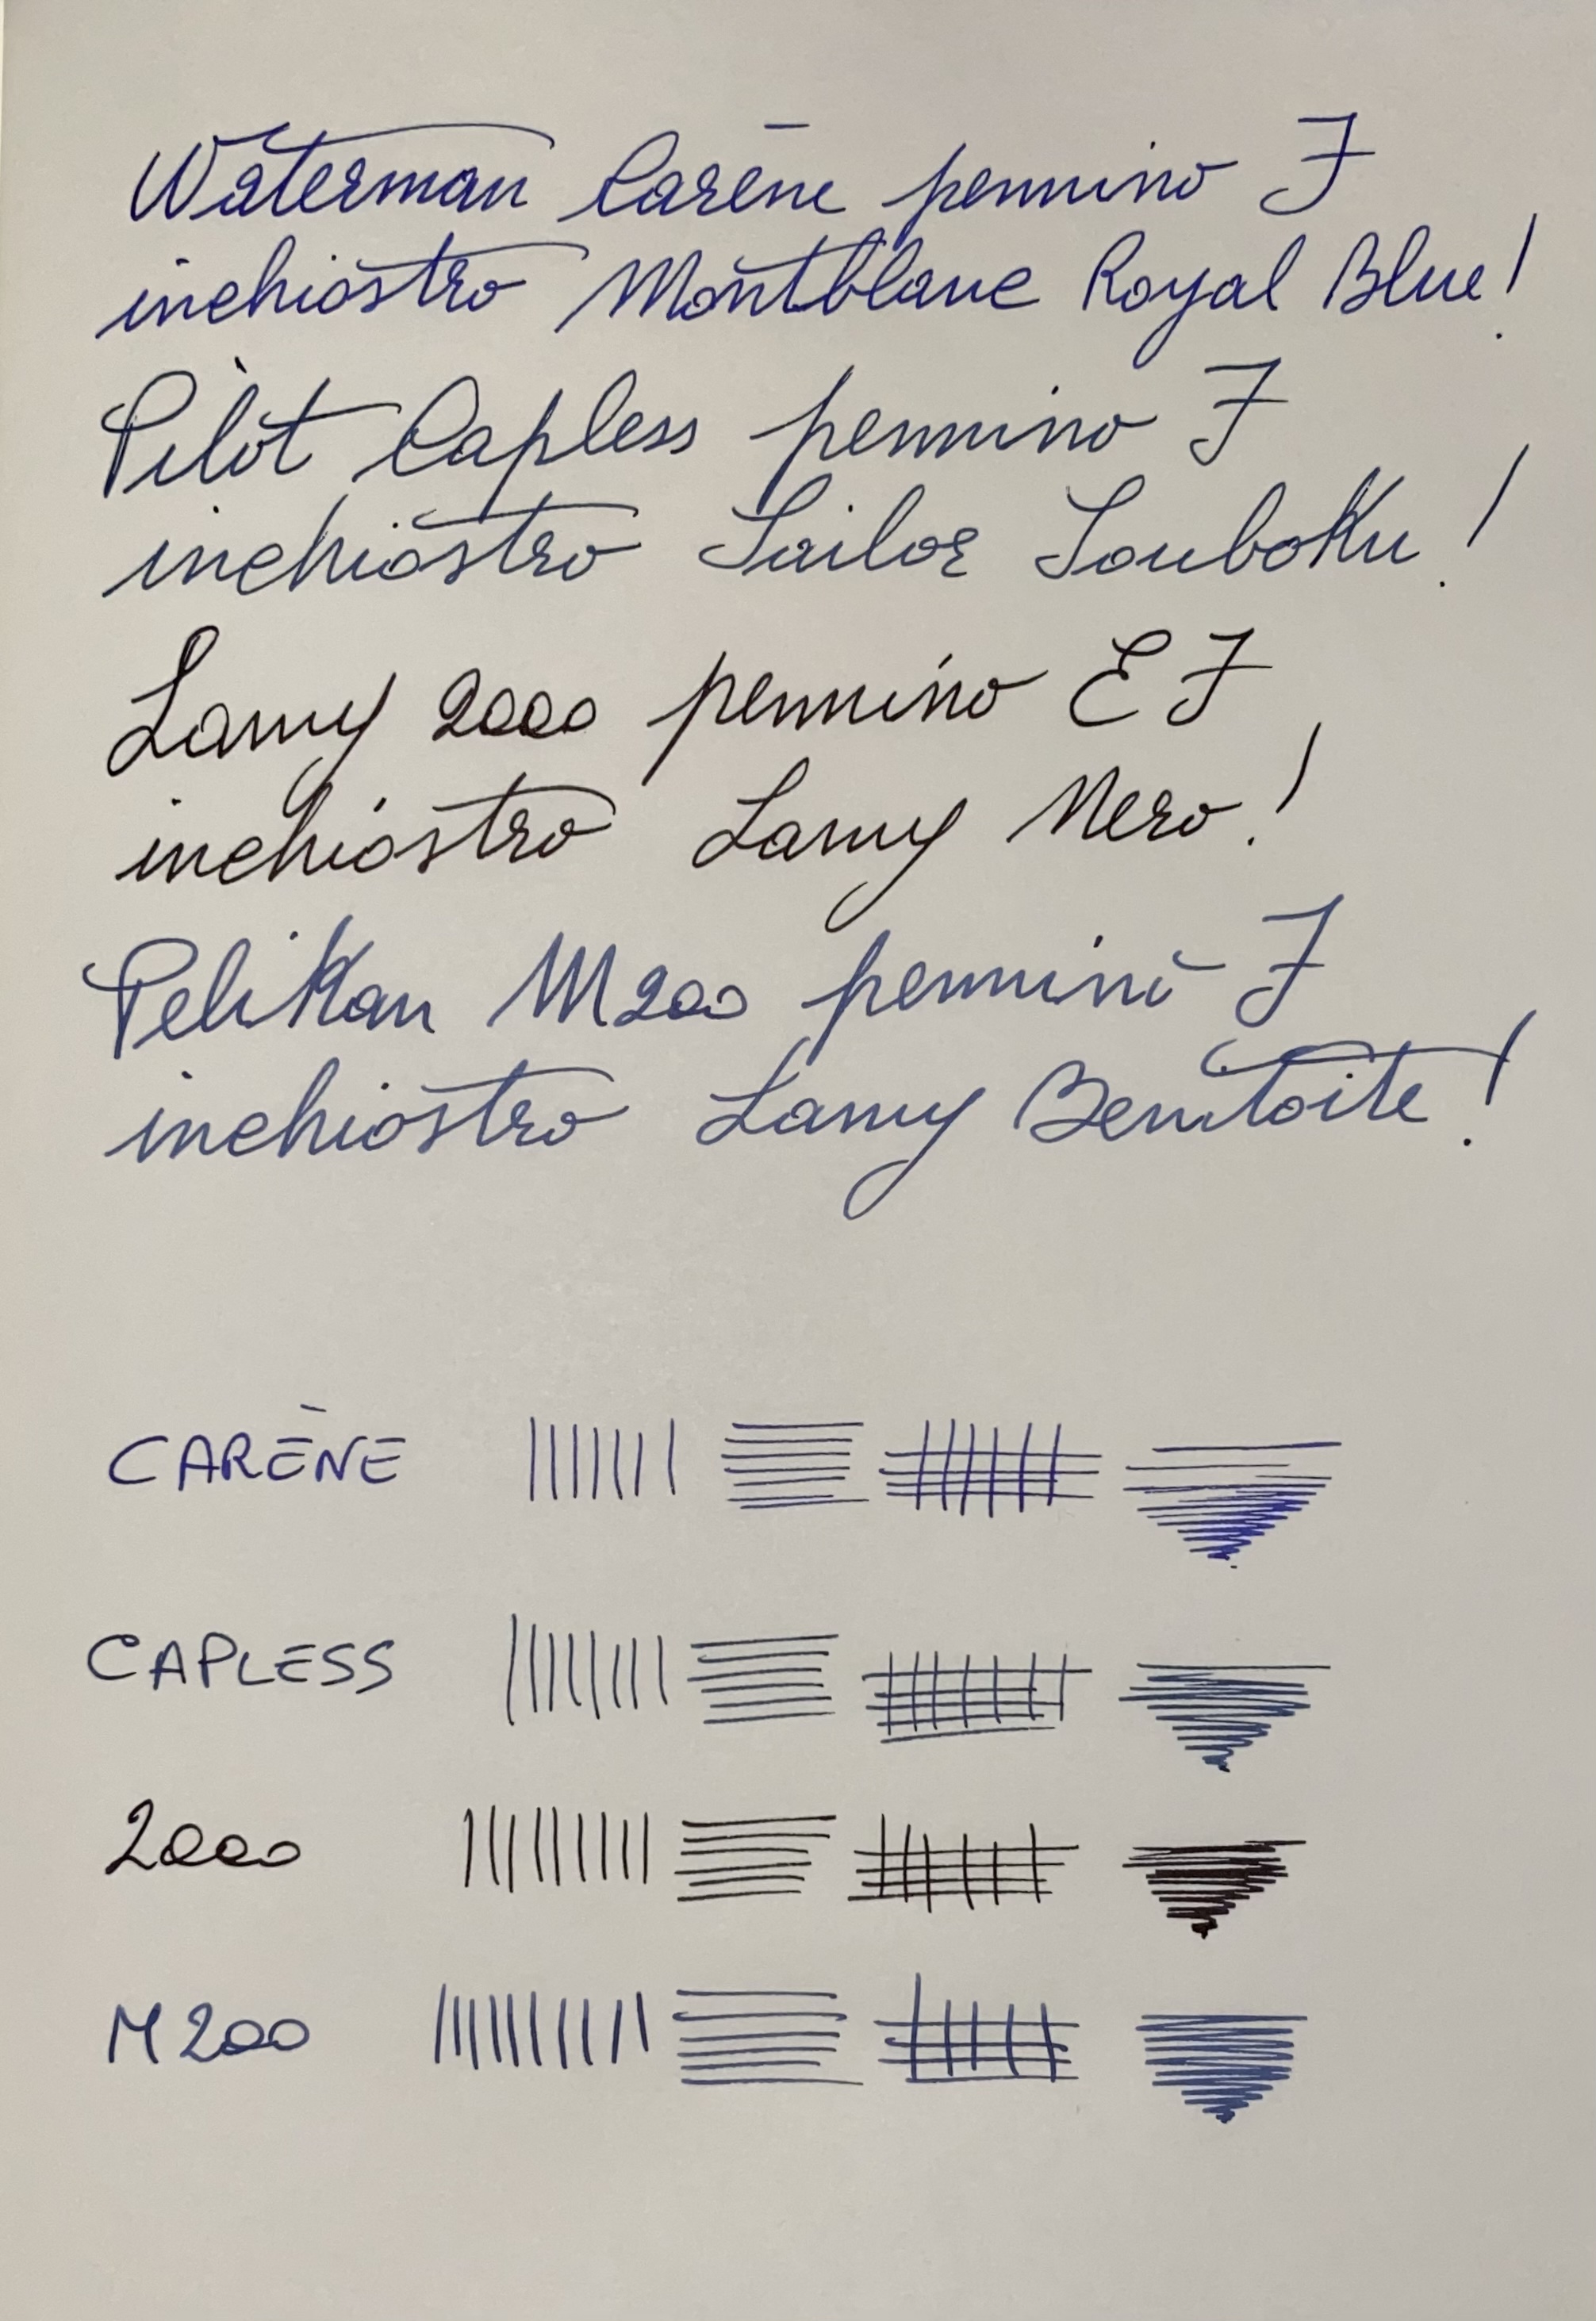 Waterman Carène pennino F
inchiostro Montblanc Royal Blue!
Pilot Capless pennino F
inchiostro Sailor Souboku!
Lamy 2000 pennino EF
inchiostro Lamy Nero!
Pelikan M200 pennino F
inchiostro Lamy Benitoite!
CARÈNE
CAPLESS
2000
M200